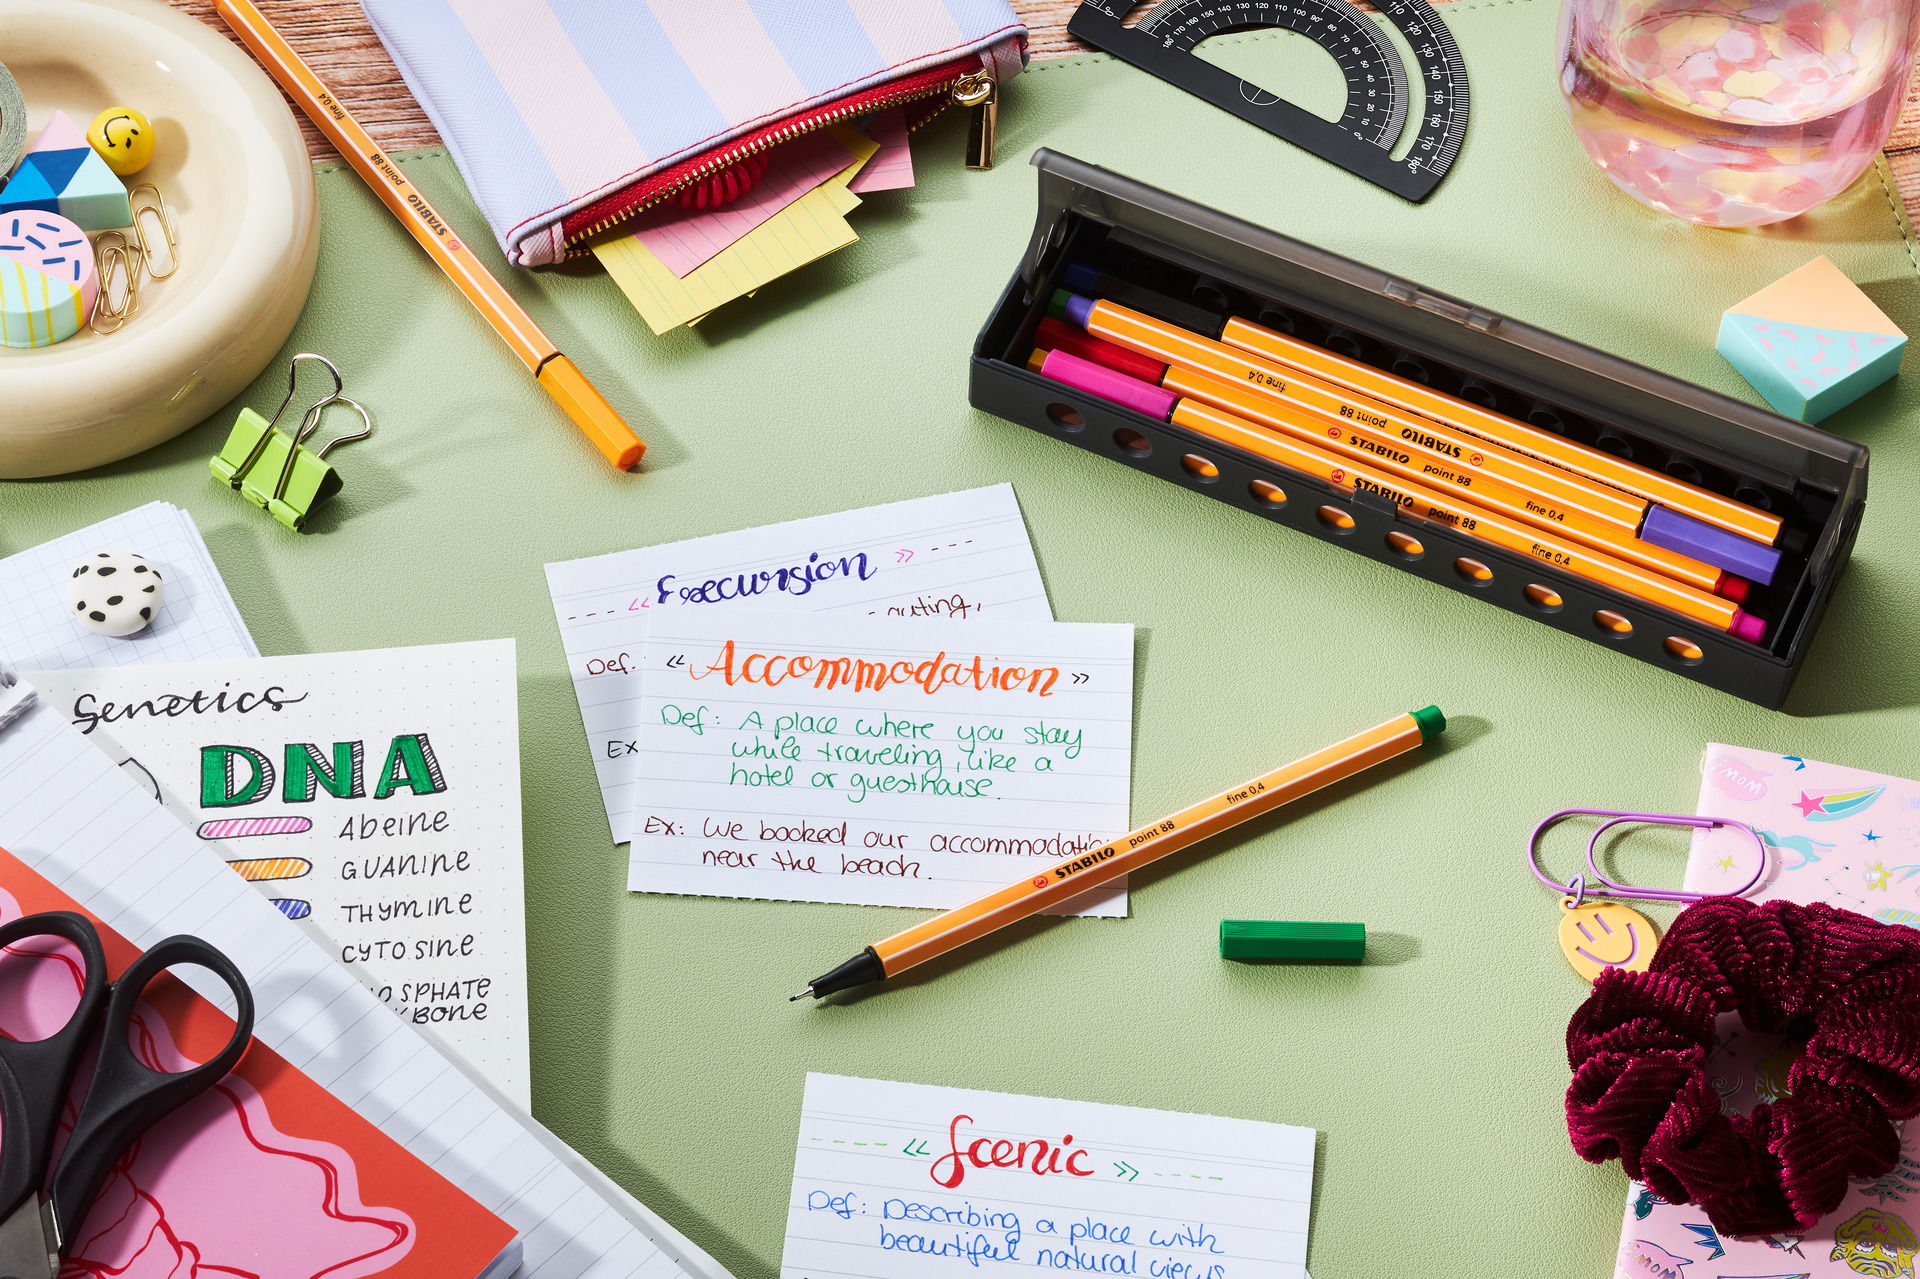 fine 0.4
point 88
STABILO
fine 0.4
point 88
STABILO
STABILO
point 88
fine 0.4
STABILO
point 88
fine 0.4
« Excursion »
Def.
Ex
« Accommodation »
Def: A place where you stay
while traveling, like a
hotel or guesthouse.
Ex: We booked our
near the beach.
STABILO point 88 fine 0.4
Genetics
DNA
Abeine
GUANINE
THYMINE
CYTOSINE
« Scenic »
Def: Describing a place with
beautiful natural views
MOM
MOM